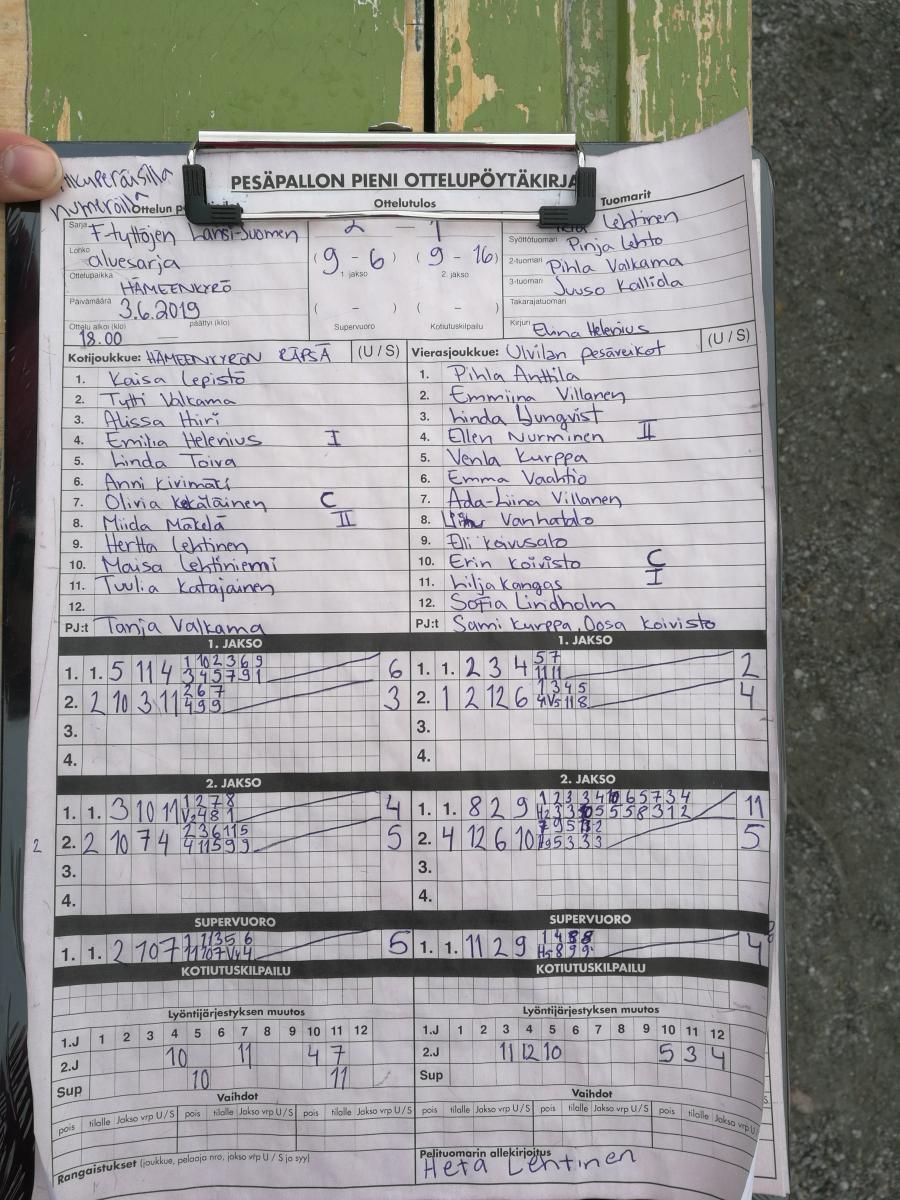 Alkuperäisillä
numeroilla
PESÄPALLON PIENI OTTELUPÖYTÄKIRJA
Ottelun
Ottelutulos
Tuomarit
Sarja F-tyttöjen Länsi-Suomen
Lohko aluesarja
Ottelupaikka HÄMEENKYRÖ
Päivämäärä 3.6.2019
Ottelu alkoi (klo) päättyi (klo)
18.00 —
2 — 1
(9 - 6) (9 - 16)
1. jakso 2. jakso
( - ) ( - )
Supervuoro Kotiutuskilpailu
Lehtinen
Syöttötuomari Pinja Lehto
2-tuomari Pihla Valkama
3-tuomari Juuso Kalliola
Takarajatuomari
Kirjuri Elina Helenius
Kotijoukkue: HÄMEENKYRÖN RÄPSÄ (U / S)
1. Kaisa Lepistö
2. Tytti Valkama
3. Alissa Hiiri
4. Emilia Helenius I
5. Linda Toiva
6. Anni Kivimäki
7. Olivia Keltäläinen C
8. Miida Mäkelä II
9. Hertta Lehtinen
10. Maisa Lehtiniemi
11. Tuulia Katajainen
12.
PJ:t Tanja Valkama
Vierasjoukkue: Ulvilan pesäveikot (U / S)
1. Pihla Anttila
2. Emmiina Villanen
3. Linda Ljungvist
4. Ellen Nurminen II
5. Venla Kurppa
6. Emma Vaahtio
7. Ada-Liina Villanen
8. Vanhatalo
9. Elli Koivusalo
10. Erin Koivisto C
11. Lilja Kangas I
12. Sofia Lindholm
PJ:t Sami Kurppa, Oosa Koivisto
1. JAKSO
1. 1. 5 11 4 1 10 2 3 6 9 6
3 4 5 7 9 1
2. 2 10 3 11 2 6 7 3
4 9 9
3.
4.
1. JAKSO
1. 1. 2 3 4 5 7 2
11 11
2. 1 2 12 6 1 3 4 5 4
3.
4.
2. JAKSO
1. 1. 3 10 11 1 2 7 8 4
V2 4 8 1
2. 2 10 7 4 2 3 6 11 5 5
4 11 5 9 9
3.
4.
2
2. JAKSO
1. 1. 8 2 9 11
2. 4 12 6 10 5
3.
4.
SUPERVUORO
1. 1. 2 10 7 5
SUPERVUORO
1. 1. 11 2 9 4
KOTIUTUSKILPAILU
KOTIUTUSKILPAILU
Lyöntijärjestyksen muutos
1.J 1 2 3 4 5 6 7 8 9 10 11 12
2.J 10 11 4 7
Sup 10 11
Lyöntijärjestyksen muutos
1.J 1 2 3 4 5 6 7 8 9 10 11 12
2.J 11 12 10 5 3 4
Sup
Vaihdot
pois tilalle Jakso vrp U / S pois tilalle Jakso vrp U / S pois tilalle Jakso vrp U / S
Vaihdot
pois tilalle Jakso vrp U / S pois tilalle Jakso vrp U / S pois tilalle Jakso vrp U
Rangaistukset (joukkue, pelaaja nro, jakso vrp U / S ja syy)
Pelituomarin allekirjoitus
Heta Lehtinen